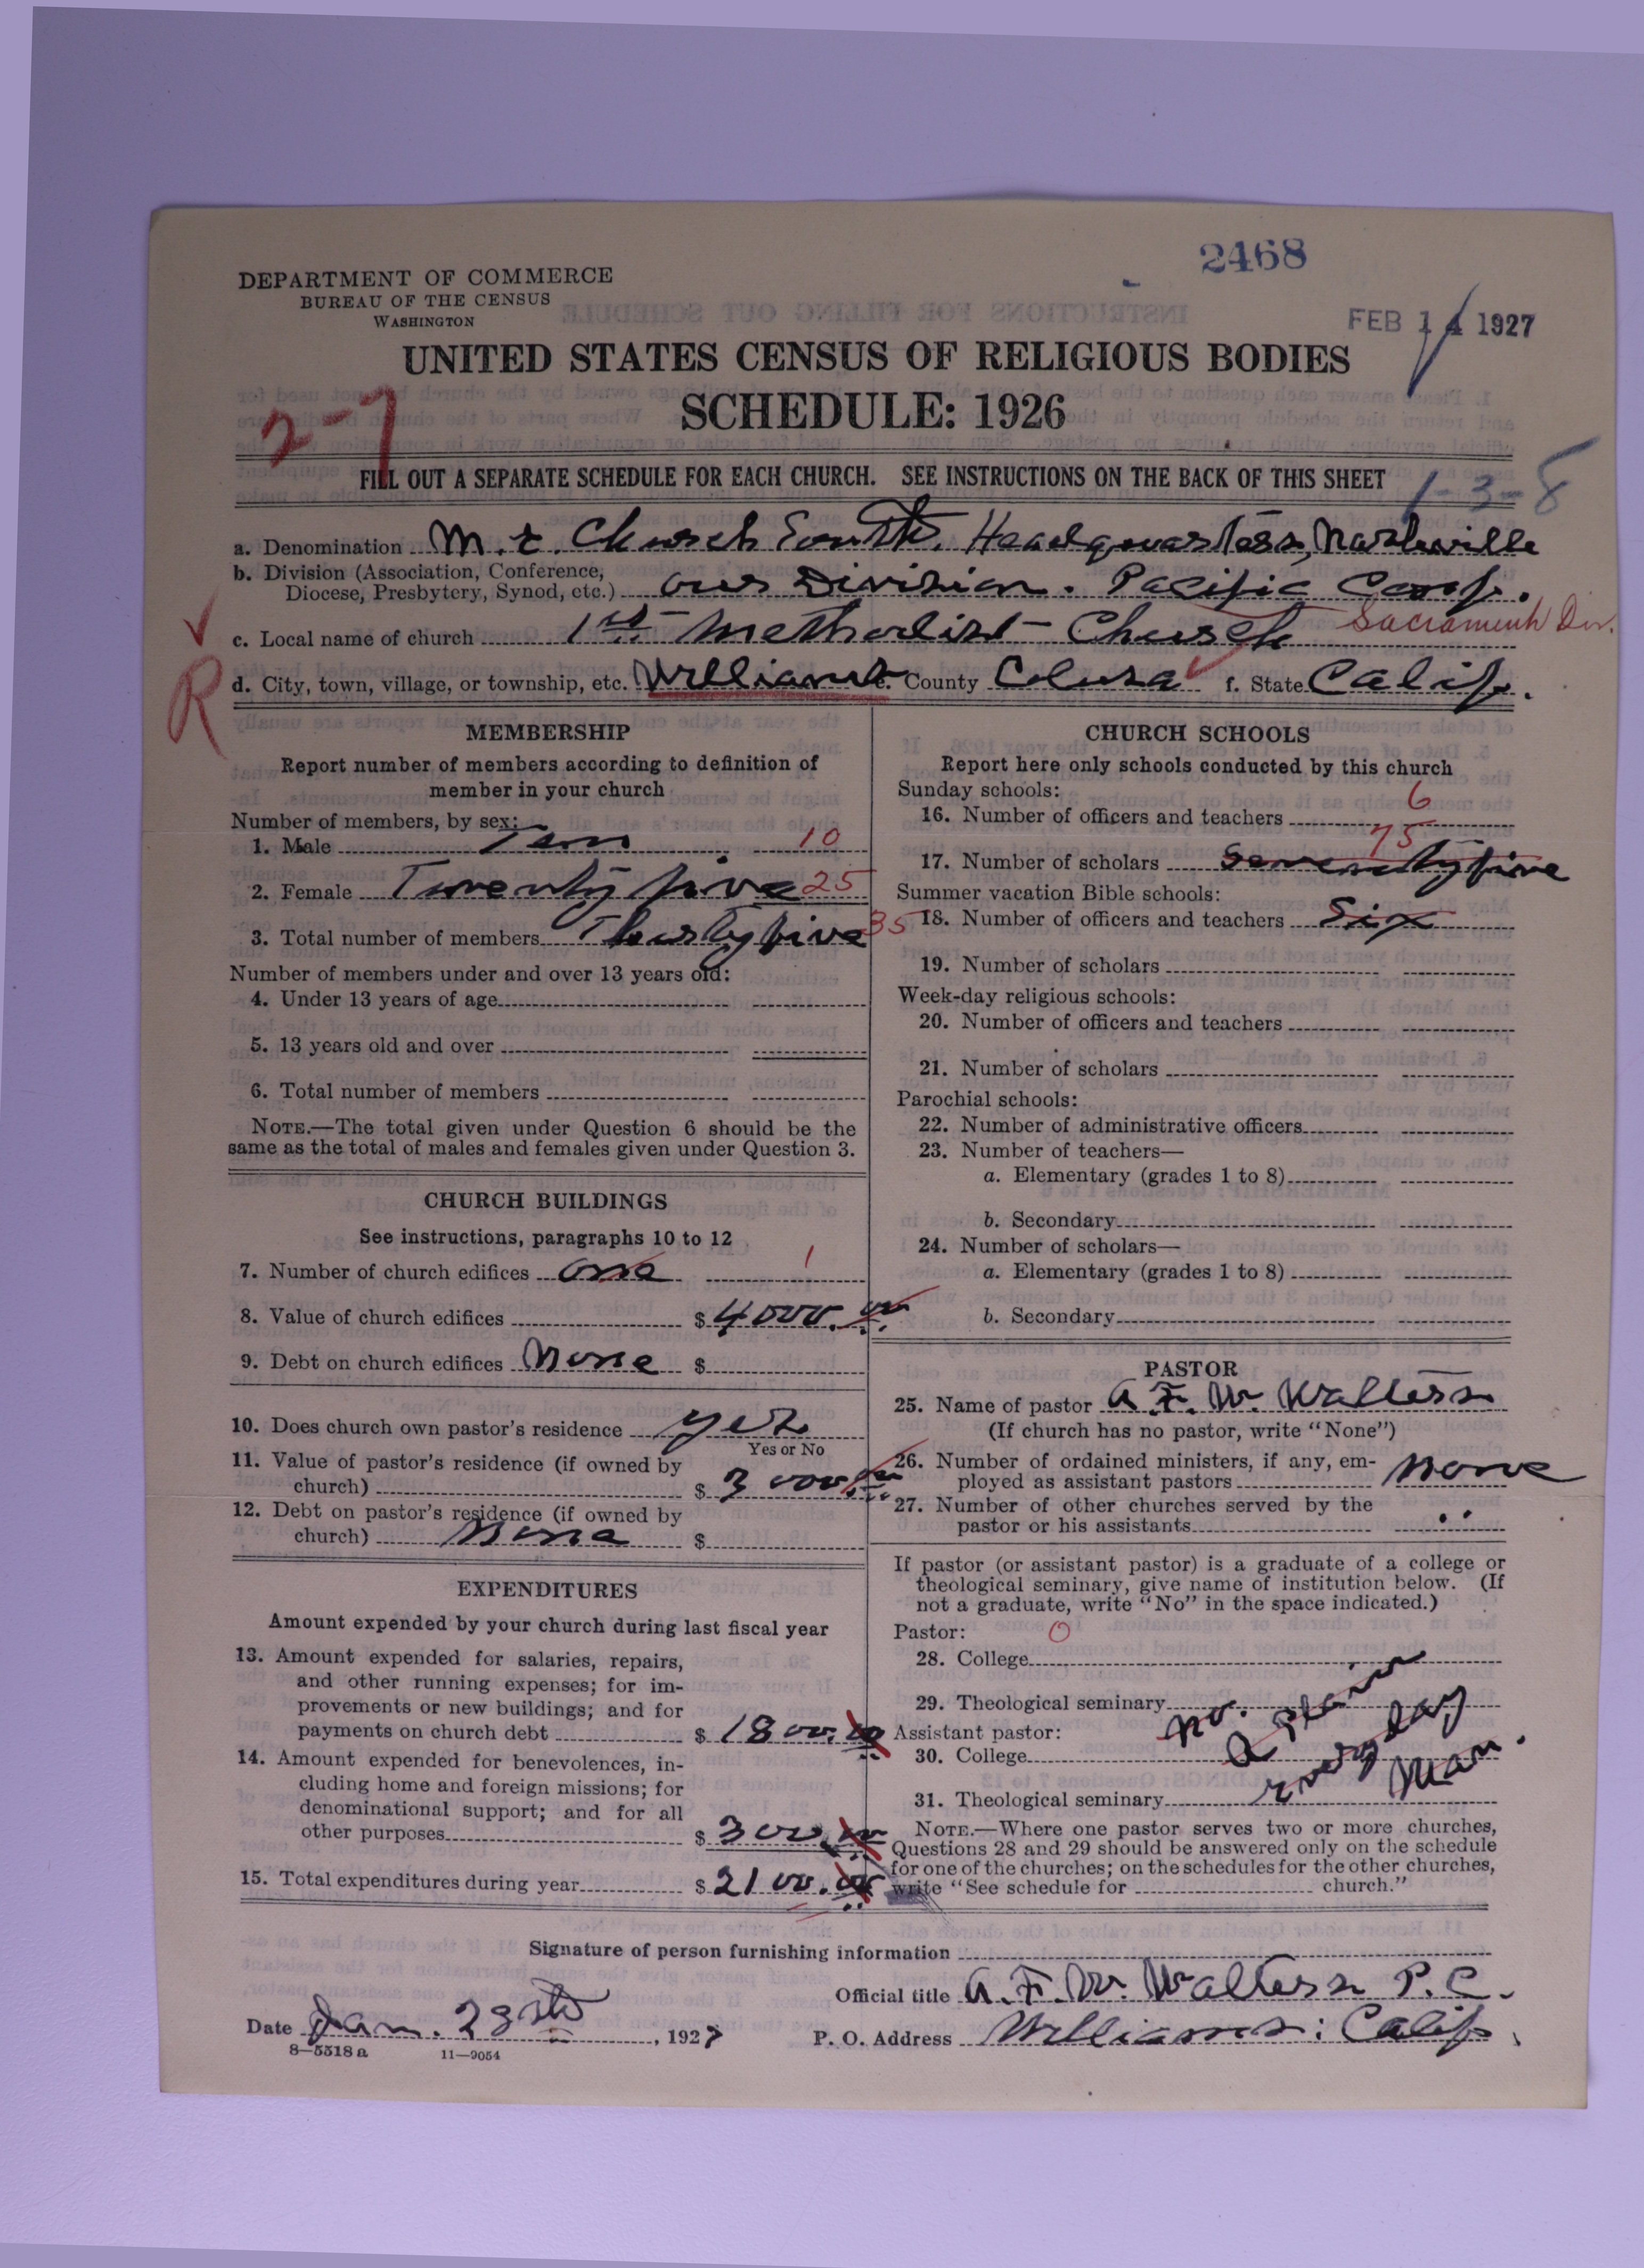 2468
DEPARTMENT OF COMMERCE
BUREAU OF THE CENSUS
WASHINGTON
FEB 14 1927
UNITED STATES CENSUS OF RELIGIOUS BODIES
SCHEDULE: 1926
2-7
FILL OUT A SEPARATE SCHEDULE FOR EACH CHURCH. SEE INSTRUCTIONS ON THE BACK OF THIS SHEET
1-3-8
a. Denomination M. E. Church South. Headquarters, Nashville
b. Division (Association, Conference, Diocese, Presbytery, Synod, etc.) our Division. Pacific Conf.
Sacramento Div.
c. Local name of church 1st Methodist Church
R
d. City, town, village, or township, etc. Williams e. County Colusa f. State Calif.
MEMBERSHIP
Report number of members according to definition of
member in your church
Number of members, by sex:
1. Male Ten 10
2. Female Twenty five 25
3. Total number of members Thirty five 35
Number of members under and over 13 years old:
4. Under 13 years of age
5. 13 years old and over
6. Total number of members
NOTE.—The total given under Question 6 should be the
same as the total of males and females given under Question 3.
CHURCH BUILDINGS
See instructions, paragraphs 10 to 12
7. Number of church edifices one 1
8. Value of church edifices $ 4000.00
9. Debt on church edifices None $
10. Does church own pastor's residence yes
Yes or No
11. Value of pastor's residence (if owned by
church) $ 3000.00
12. Debt on pastor's residence (if owned by
church) None $
EXPENDITURES
Amount expended by your church during last fiscal year
13. Amount expended for salaries, repairs,
and other running expenses; for im-
provements or new buildings; and for
payments on church debt $ 1800.00
14. Amount expended for benevolences, in-
cluding home and foreign missions; for
denominational support; and for all
other purposes $ 300.00
15. Total expenditures during year $ 2100.00
CHURCH SCHOOLS
Report here only schools conducted by this church
Sunday schools:
16. Number of officers and teachers 6
17. Number of scholars Seventy five 75
Summer vacation Bible schools:
18. Number of officers and teachers Six
19. Number of scholars
Week-day religious schools:
20. Number of officers and teachers
21. Number of scholars
Parochial schools:
22. Number of administrative officers
23. Number of teachers—
a. Elementary (grades 1 to 8)
b. Secondary
24. Number of scholars—
a. Elementary (grades 1 to 8)
b. Secondary
PASTOR
25. Name of pastor A. F. W. Walters
(If church has no pastor, write "None")
26. Number of ordained ministers, if any, em-
ployed as assistant pastors None
27. Number of other churches served by the
pastor or his assistants ..
If pastor (or assistant pastor) is a graduate of a college or
theological seminary, give name of institution below. (If
not a graduate, write "No" in the space indicated.)
Pastor: 0
28. College
29. Theological seminary
Assistant pastor:
30. College
31. Theological seminary
no. a plain
every day
man.
NOTE.—Where one pastor serves two or more churches,
Questions 28 and 29 should be answered only on the schedule
for one of the churches; on the schedules for the other churches,
write "See schedule for church."
Signature of person furnishing information
Official title A. F. W. Walters P. C.
Date Jan. 28th, 1927
P. O. Address Williams: Calif.
8—5518 a 11—9054